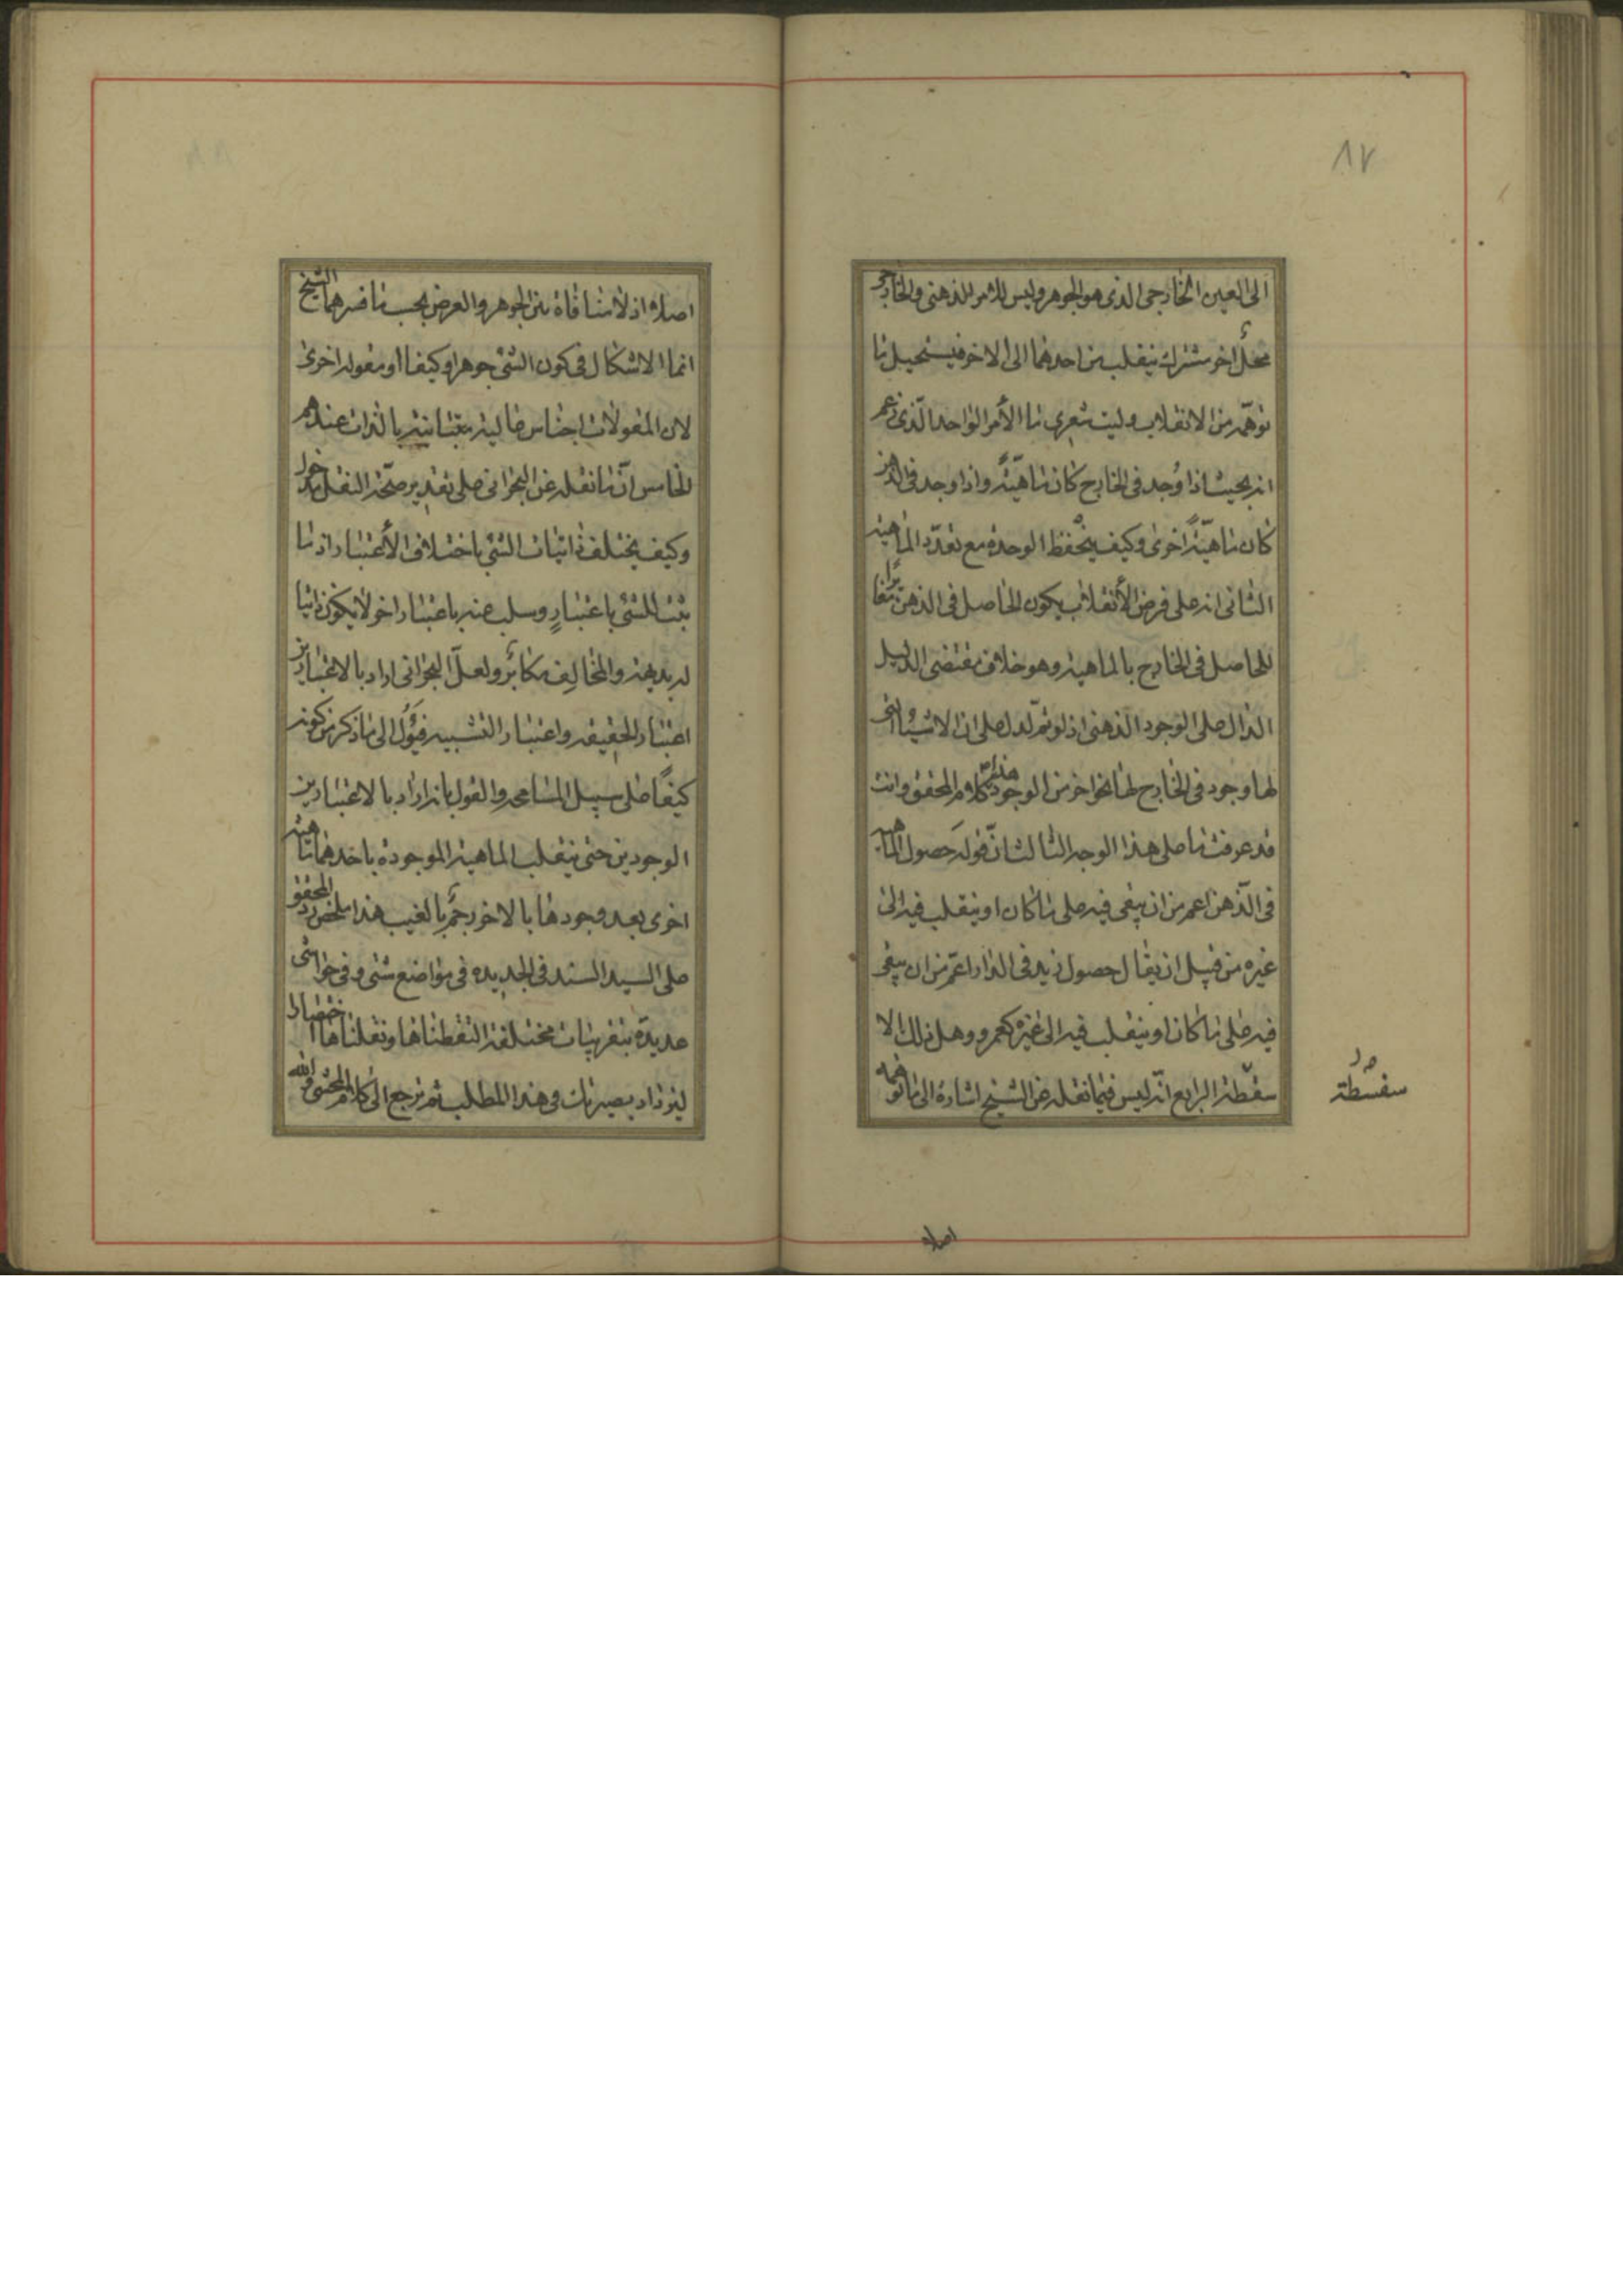 ٨٧
الى العين الخارجى الذى هو الجوهر وليس للامر الذهنى والخارجى
محلّ اخر مشترك ينقلب من احدهما الى الاخر فيستحيل ما
توهّمه من الانقلاب وليت شعرى ما الأمر الواحد الّذى زعم
انه بحيث اذا وُجد فى الخارج كان ماهيّةً واذا وجد فى الذهن
كان ماهيّةً اخرى وكيف يُحفظ الوحدة مع تعدّد الماهية
الثانى انه على فرض الأنقلاب يكون الحاصل فى الذهن مغايرًا
للحاصل فى الخارج بالماهية وهو خلاف مقتضى الدليل
الدال على الوجود الذهنى اذ لو تمّ لدل على ان الاشياء التى
لها وجود فى الخارج لها نحو اخر من الوجود هذا كلام المحقق وانت
قد عرفت ما على هذا الوجه الثالث انّ قوله حصول الماهية
فى الذّهن اعم من ان يبقى فيه على ما كان او ينقلب فيه الى
غيره من قبيل ان يقال حصول زيد فى الدار اعمّ من ان يبقى
فيه على ما كان او ينقلب فيه الى غيره كعمرو وهل ذلك الا
سفسطة الرابع انّه ليس فيما نقله عن الشيخ اشارة الى ما توهمه
سفسطة
اصلا
اصلا اذ لا منافاة بين الجوهر والعرض بحسب ما فسرهما الشيخ
انما الاشكال فى كون الشئ جوهرا وكيفا او مقوله اخرى
لان المقولات اجناس عالية متباينة بالذات عندهم
الخامس انّ ما نقله عن البحرانى على تقدير صحّة النقل مدخول
وكيف يختلف ذاتيات الشئ باختلاف الأعتبار اذ ما
يثبت للشئ باعتبارٍ وسلب عنه باعتبار اخر لا يكون ذاتيا
له بديهة والمخالِف مكابر ولعلّ البحرانى اراد بالاعتبارين
اعتبار الحقيقه واعتبار التشبيه فيَؤُل الى ما ذكر من كونه
كيفًا على سبيل المسامحه والقول بانه اراد بالاعتبارين
الوجودين حتى ينقلب الماهية الموجودة باحدهما ماهية
اخرى بعد وجودها بالاخر رجمٌ بالغيب هذا ملخص رد المحقق
على السيد السند فى الجديده فى مواضع شتى وفى حواشى
عديدة بتقريبات مختلفة التقطناها ونقلناها اختصارا
ليزداد بصيرتك فى هذا المطلب ثم نرجع الى كلام المحشى والله